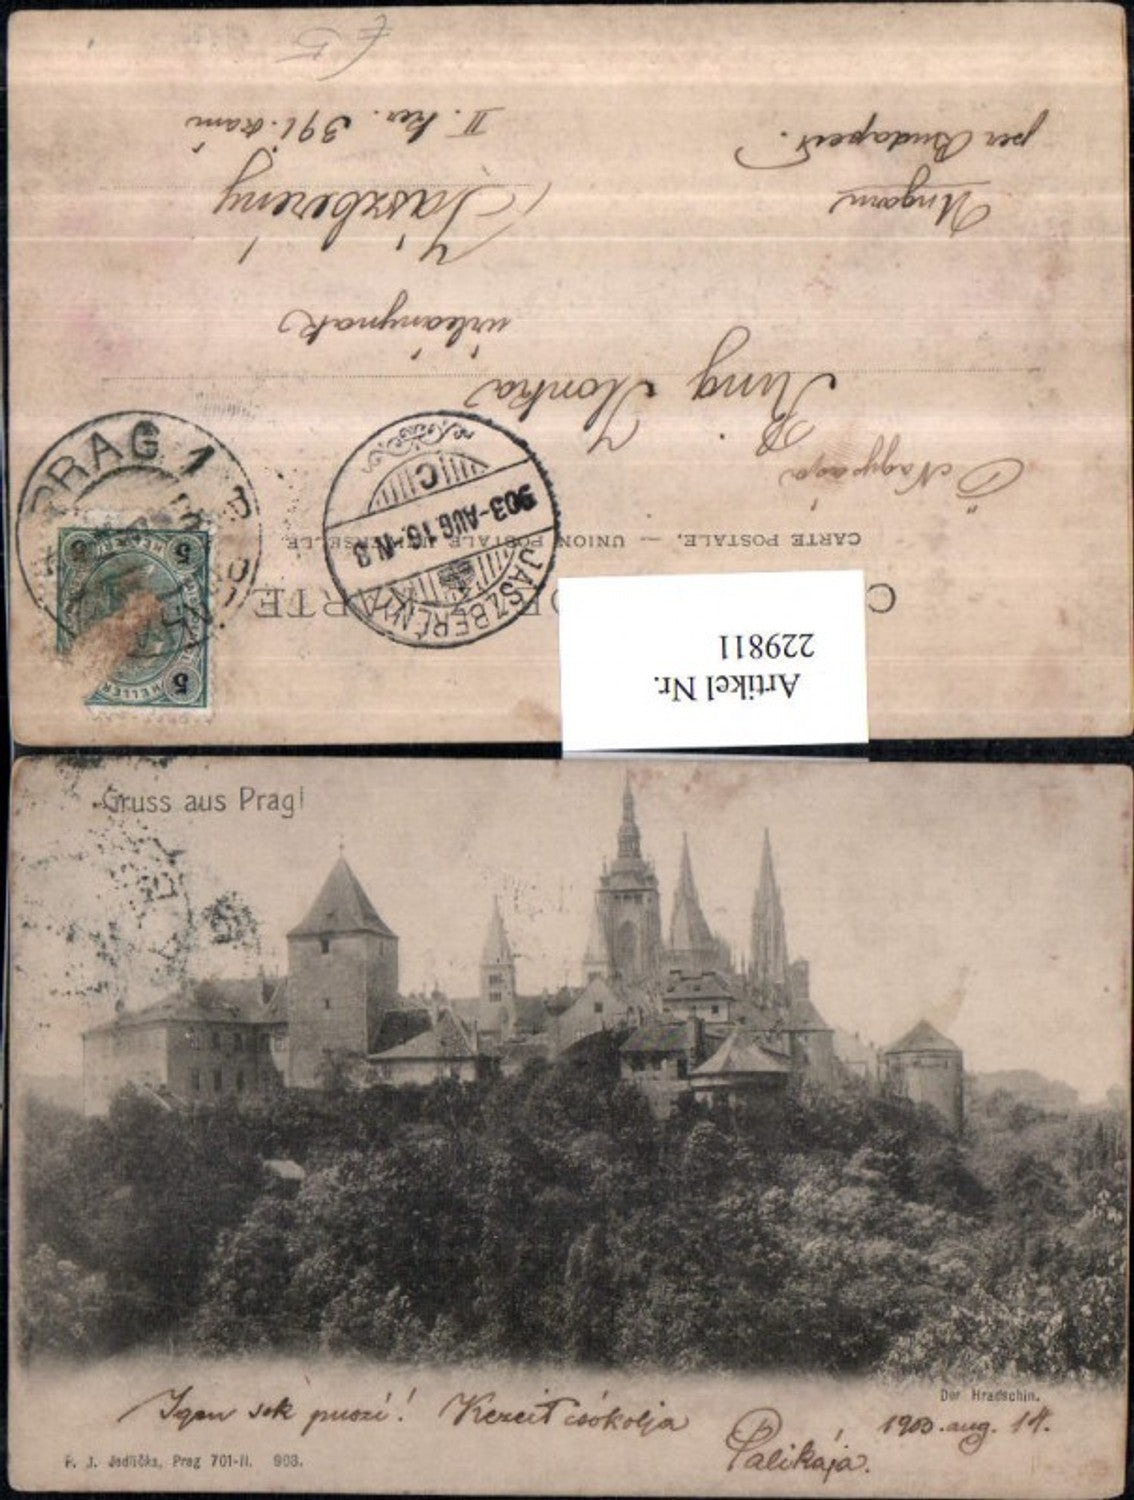 € 5
CARTE POSTALE. — UNION POSTALE UNIVERSELLE.
Ő Nagysága
Ring Ilonka
úrleánynak
Jászberény
II. ker. 391. szám
Ungarn
per Budapest.
PRAG 1
5 5
HELLER
5
JÁSZBERÉNY
903-AUG 16.-N3
C
Artikel Nr.
229811
Gruss aus Prag!
Der Hradschin.
Igen sok puszi! Kezeit csókolja
Palikája.
1903. aug. 14.
F. J. Jedlička, Prag 701-II. 903.